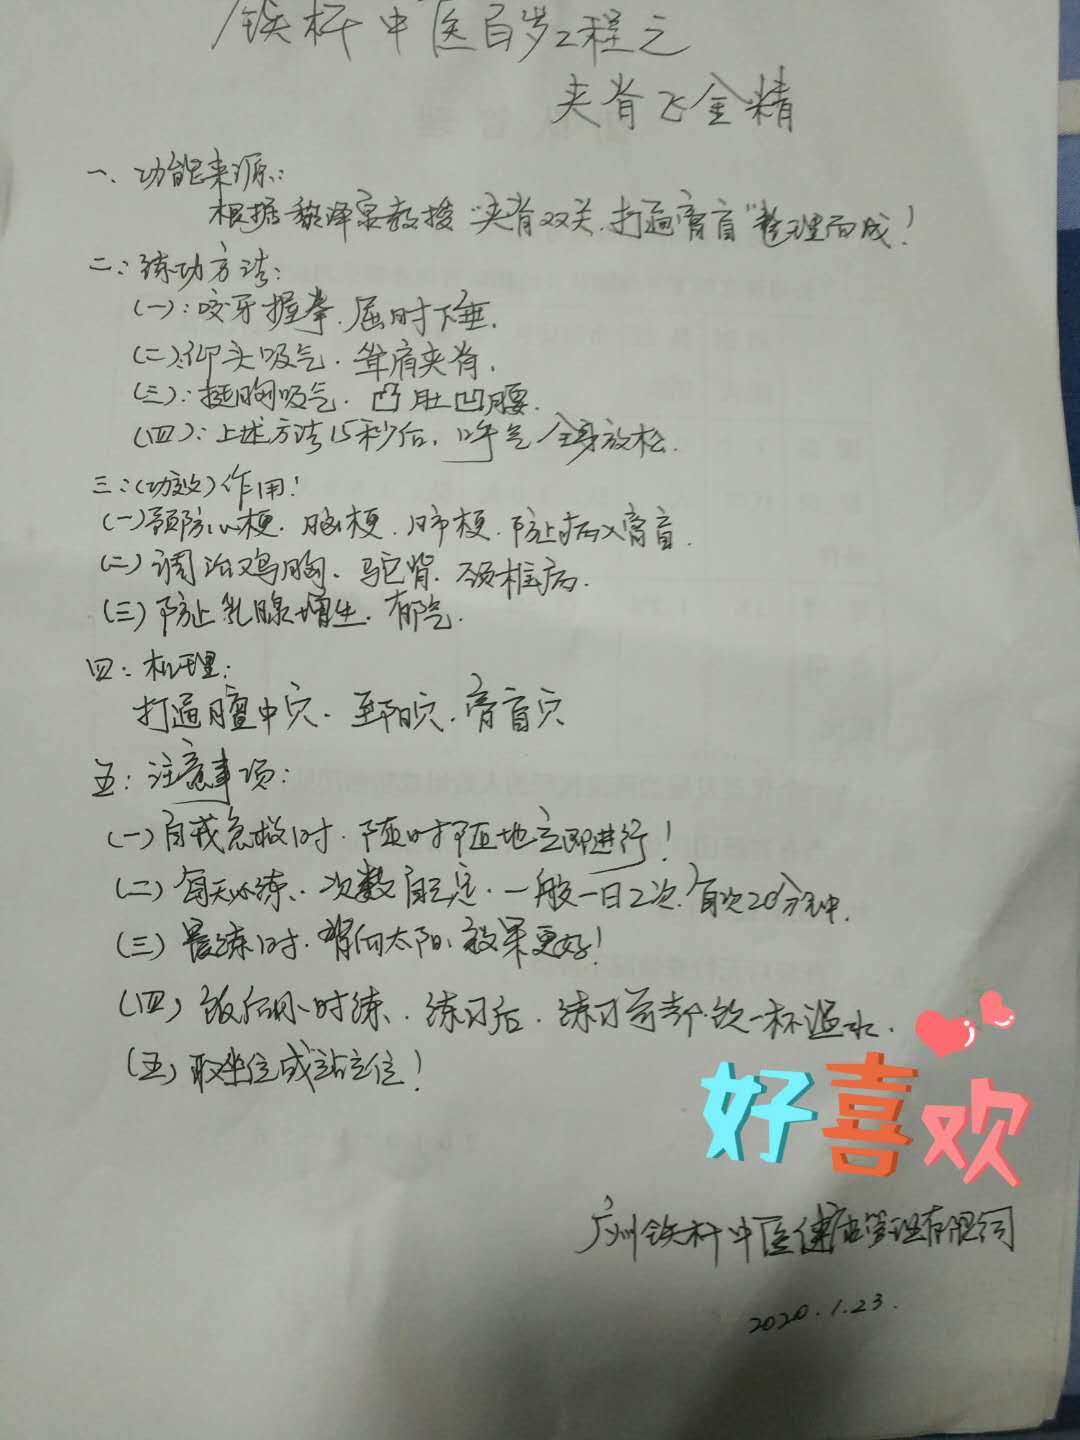 铁杆中医百岁工程之
夹脊飞金精
一、功能来源:
根据黎泽泉教授"夹脊双关、打通膏肓"整理而成!
二:练功方法:
(一):咬牙握拳、屈肘下垂.
(二):仰头吸气、耸肩夹脊.
(三):挺胸吸气、凸肚凹腰.
(四):上述方法15秒后、呼气全身放松.
三:(功效)作用:
(一)预防心梗、脑梗、肺梗、防止病入膏肓.
(二)调治鸡胸、驼背、颈椎病.
(三)防止乳腺增生、郁气.
四:机理:
打通膻中穴、至阳穴、膏肓穴
五:注意事项:
(一)自我急救时、随时随地立即进行!
(二)每天必练、次数自定、一般一日2次、每次20分钟.
(三)晨练时、背向太阳、效果更好!
(四)饭后小时练、练习后、练习前都饮一杯温水.
(五)取坐位或站立位!
好喜欢
广州铁杆中医健康管理有限公司
2020.1.23.